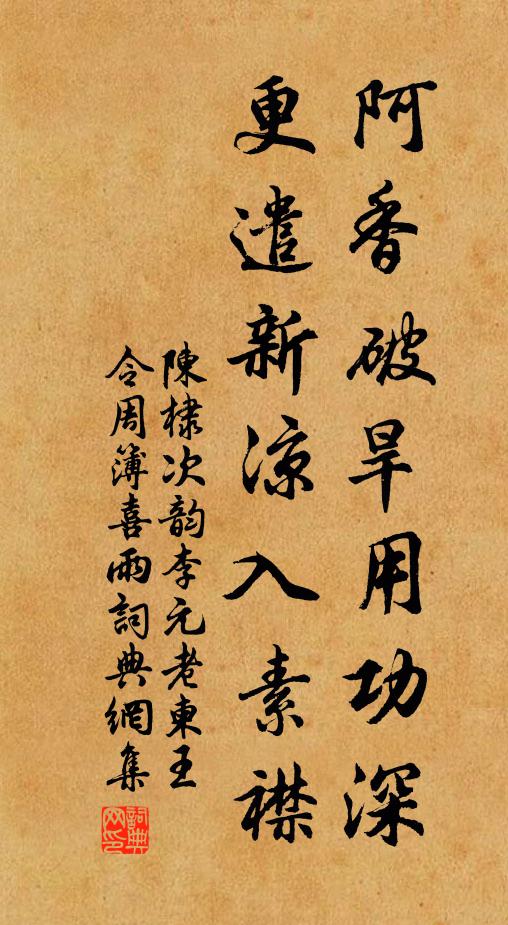 阿香破旱用功深
更遣新涼入素襟
陳棣次韵李元老東王
令周簿喜雨詞典網集
詞典
网印